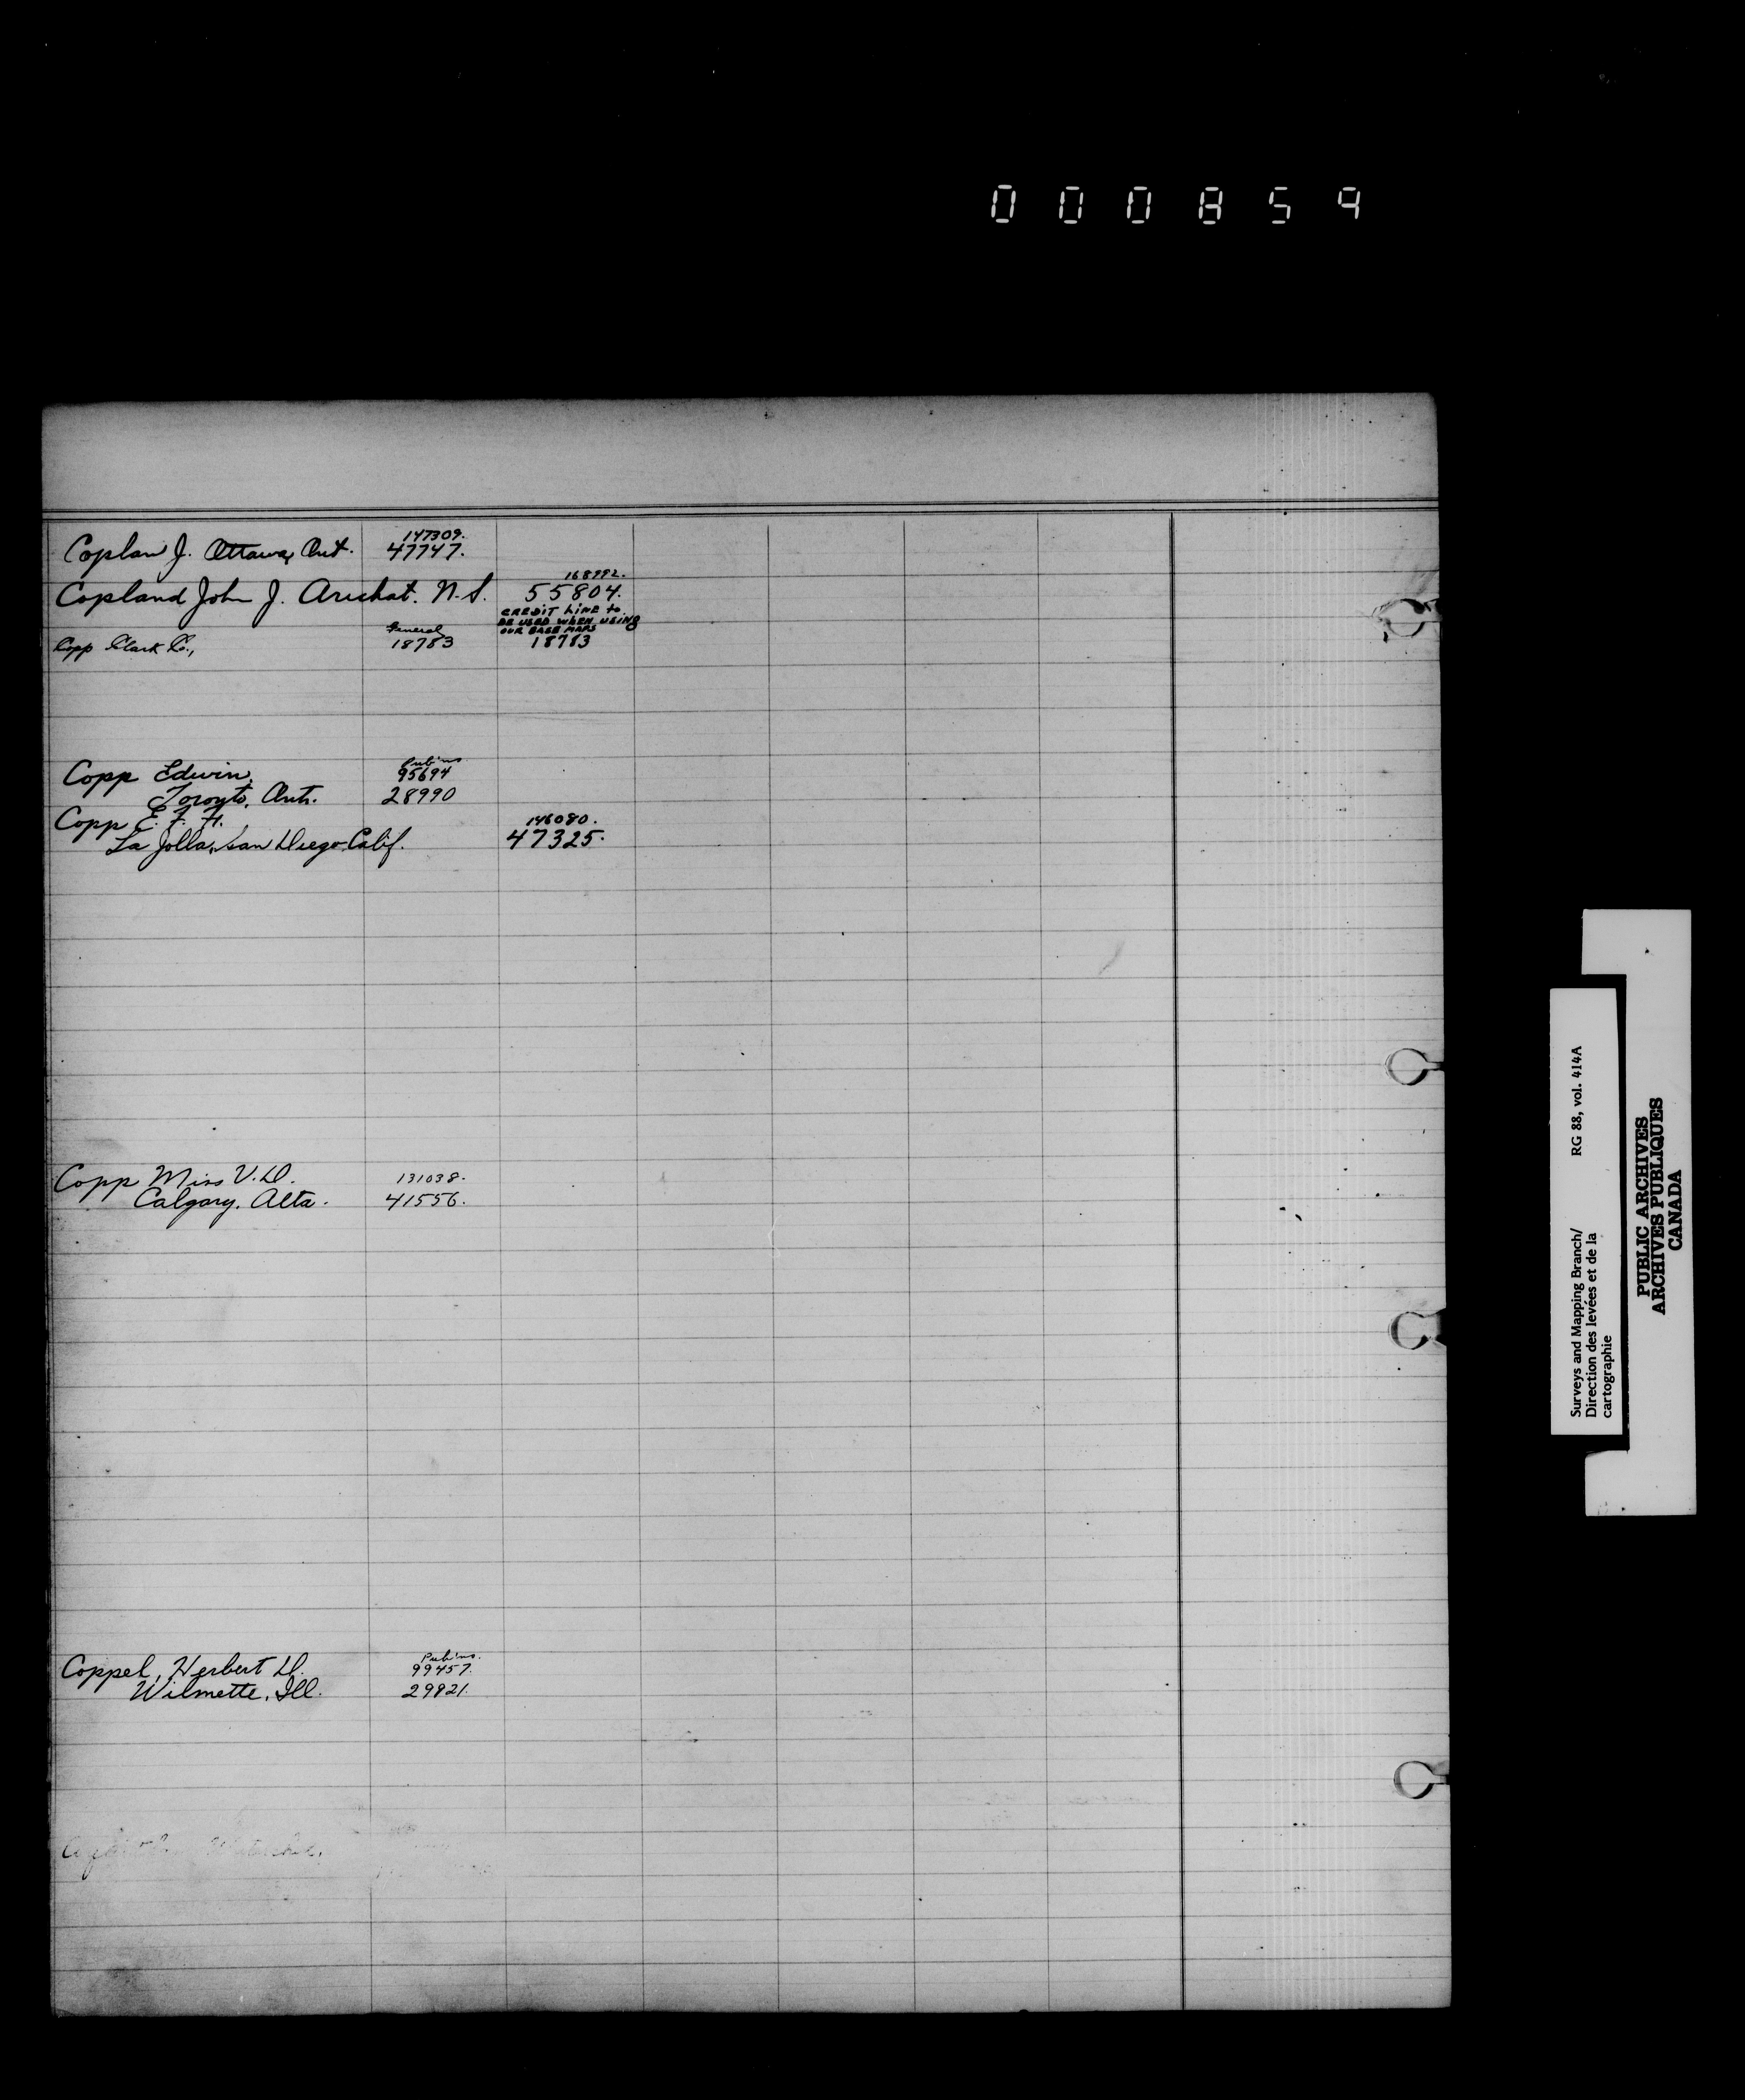 000859
Coplan J. Ottawa, Ont. 147309.
47747.
Copland John J. Arichat. N.S. 168992.
55804.
CREDIT LINE to
BE USED WHEN USING
OUR BASE MAPS
Copp Clark Co., General
18783 18783
Copp Edwin, Pub'ns
95694
Toronto, Ont. 28990
Copp E. F. H. 146080.
La Jolla, San Diego Calif. 47325.
Copp Miss V.D. 131038.
Calgary, Alta. 41556.
Coppel, Herbert D. Pub'ns.
99457.
Wilmette, Ill. 29821.
Surveys and Mapping Branch/ RG 88, vol. 414A
Direction des levées et de la
cartographie
PUBLIC ARCHIVES
ARCHIVES PUBLIQUES
CANADA